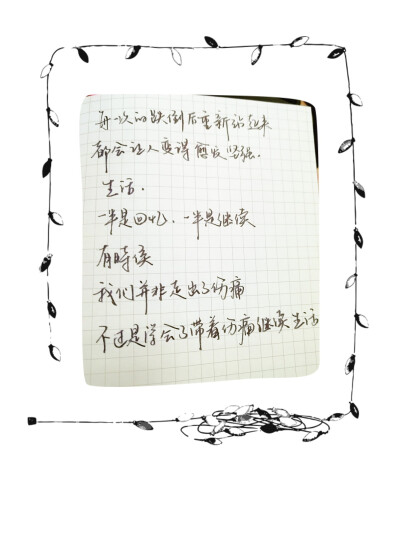 每一次的跌倒后重新站起来
都会让人变得愈发坚强.
生活.
一半是回忆.一半是继续
有時候
我们并非走出了伤痛
不过是学会了带着伤痛继续生活